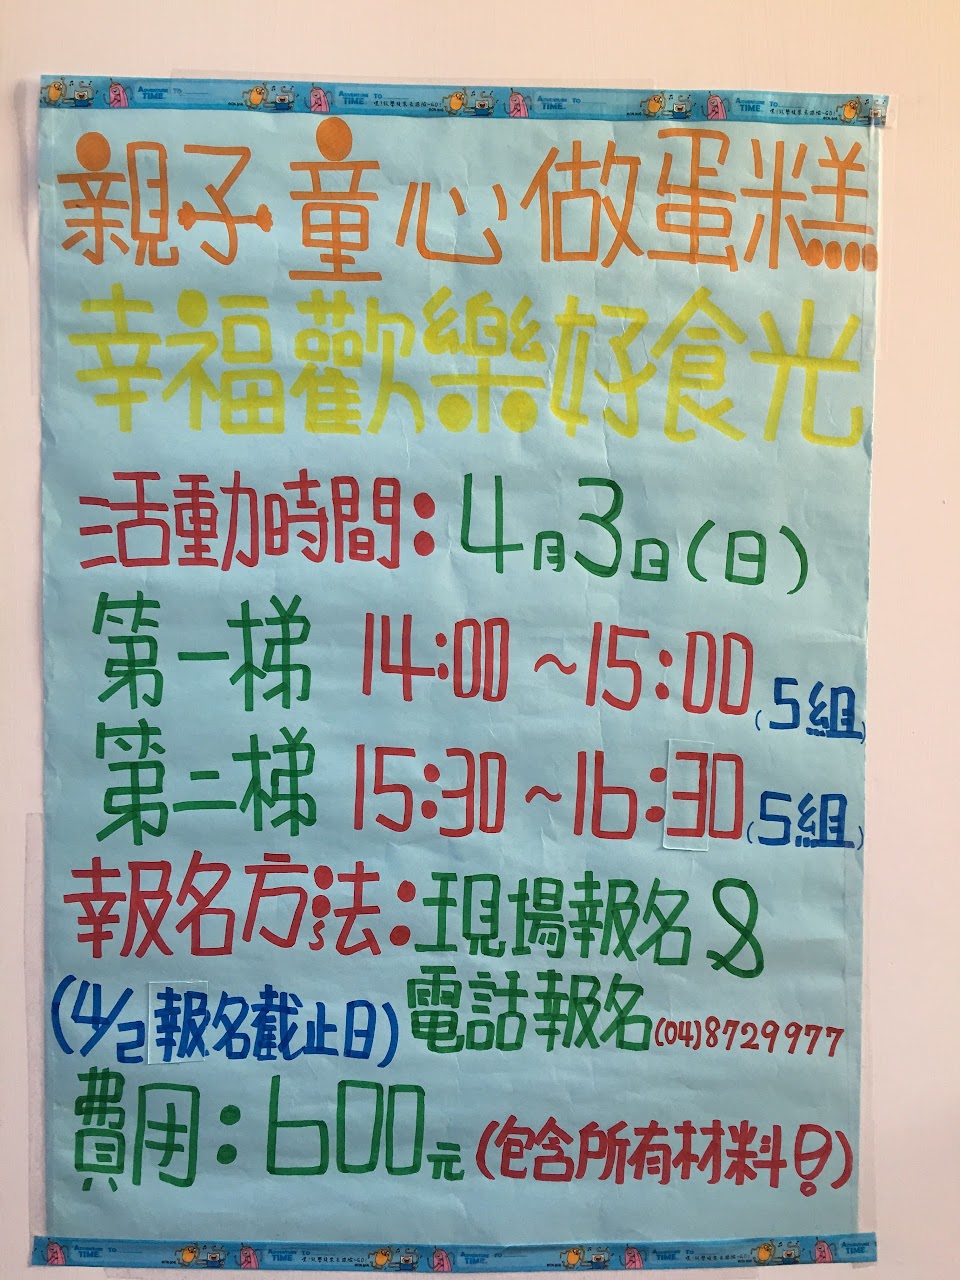 親子童心做蛋糕
幸福歡樂好食光
活動時間：4月3日(日)
第一梯 14:00～15:00 (5組)
第二梯 15:30～16:30 (5組)
報名方法：現場報名&
(4/2報名截止日) 電話報名(04)8729977
費用：600元(包含所有材料!)